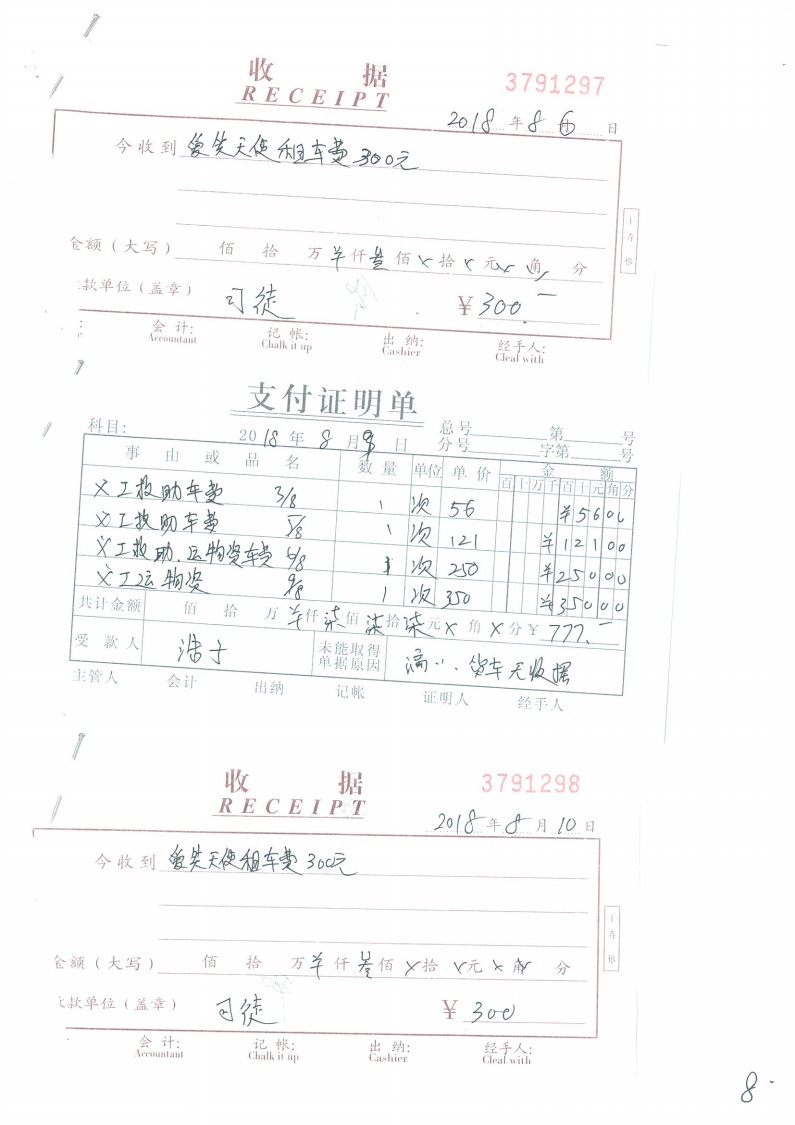 收 据 3791297
RECEIPT
2018 年 8 月 6 日
今收到 爱笑天使租车费300元
金额（大写） 佰 拾 万 羊 仟 叁 佰 × 拾 × 元 × 角 分
款单位（盖章） 司徒 ¥ 300.—
会 计: 记 帐: 出 纳: 经手人:
Accountant Chalk it up Cashier Cleal with
支付证明单
科目: 2018 年 8 月 9 日 总号 第 号
分号 字第 号
事 由 或 品 名 数 量 单位 单 价 金 额
百 十 万 千 百 十 元 角 分
义工救助车费 3/8 1 次 56 ¥ 5 6 0 0
义工救助车费 5/8 1 次 121 ¥ 1 2 1 0 0
义工救助.运物资车费 6/8 1 次 250 ¥ 2 5 0 0 0
义工运物资 9/8 1 次 350 ¥ 3 5 0 0 0
共计金额 佰 拾 万 羊 仟 柒 佰 柒 拾 柒 元 × 角 × 分 ¥ 777.—
受 款 人 浩子 未能取得单据原因 滴 . 货车无收据
主管人 会计 出纳 记帐 证明人 经手人
收 据 3791298
RECEIPT
2018 年 8 月 10 日
今收到 爱笑天使租车费300元
金额（大写） 佰 拾 万 羊 仟 叁 佰 × 拾 × 元 × 角 分
款单位（盖章） 司徒 ¥ 300
会 计: 记 帐: 出 纳: 经手人:
Accountant Chalk it up Cashier Cleal with
8